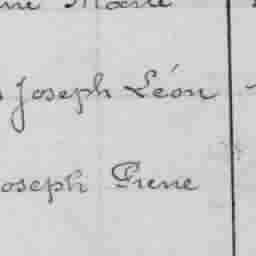 Marie
Joseph Léon
Joseph Irene